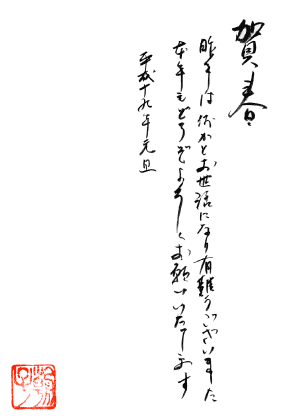 賀春
昨年は何かとお世話になり有難うございました
本年もどうぞよろしくお願いいたします
平成十九年元旦